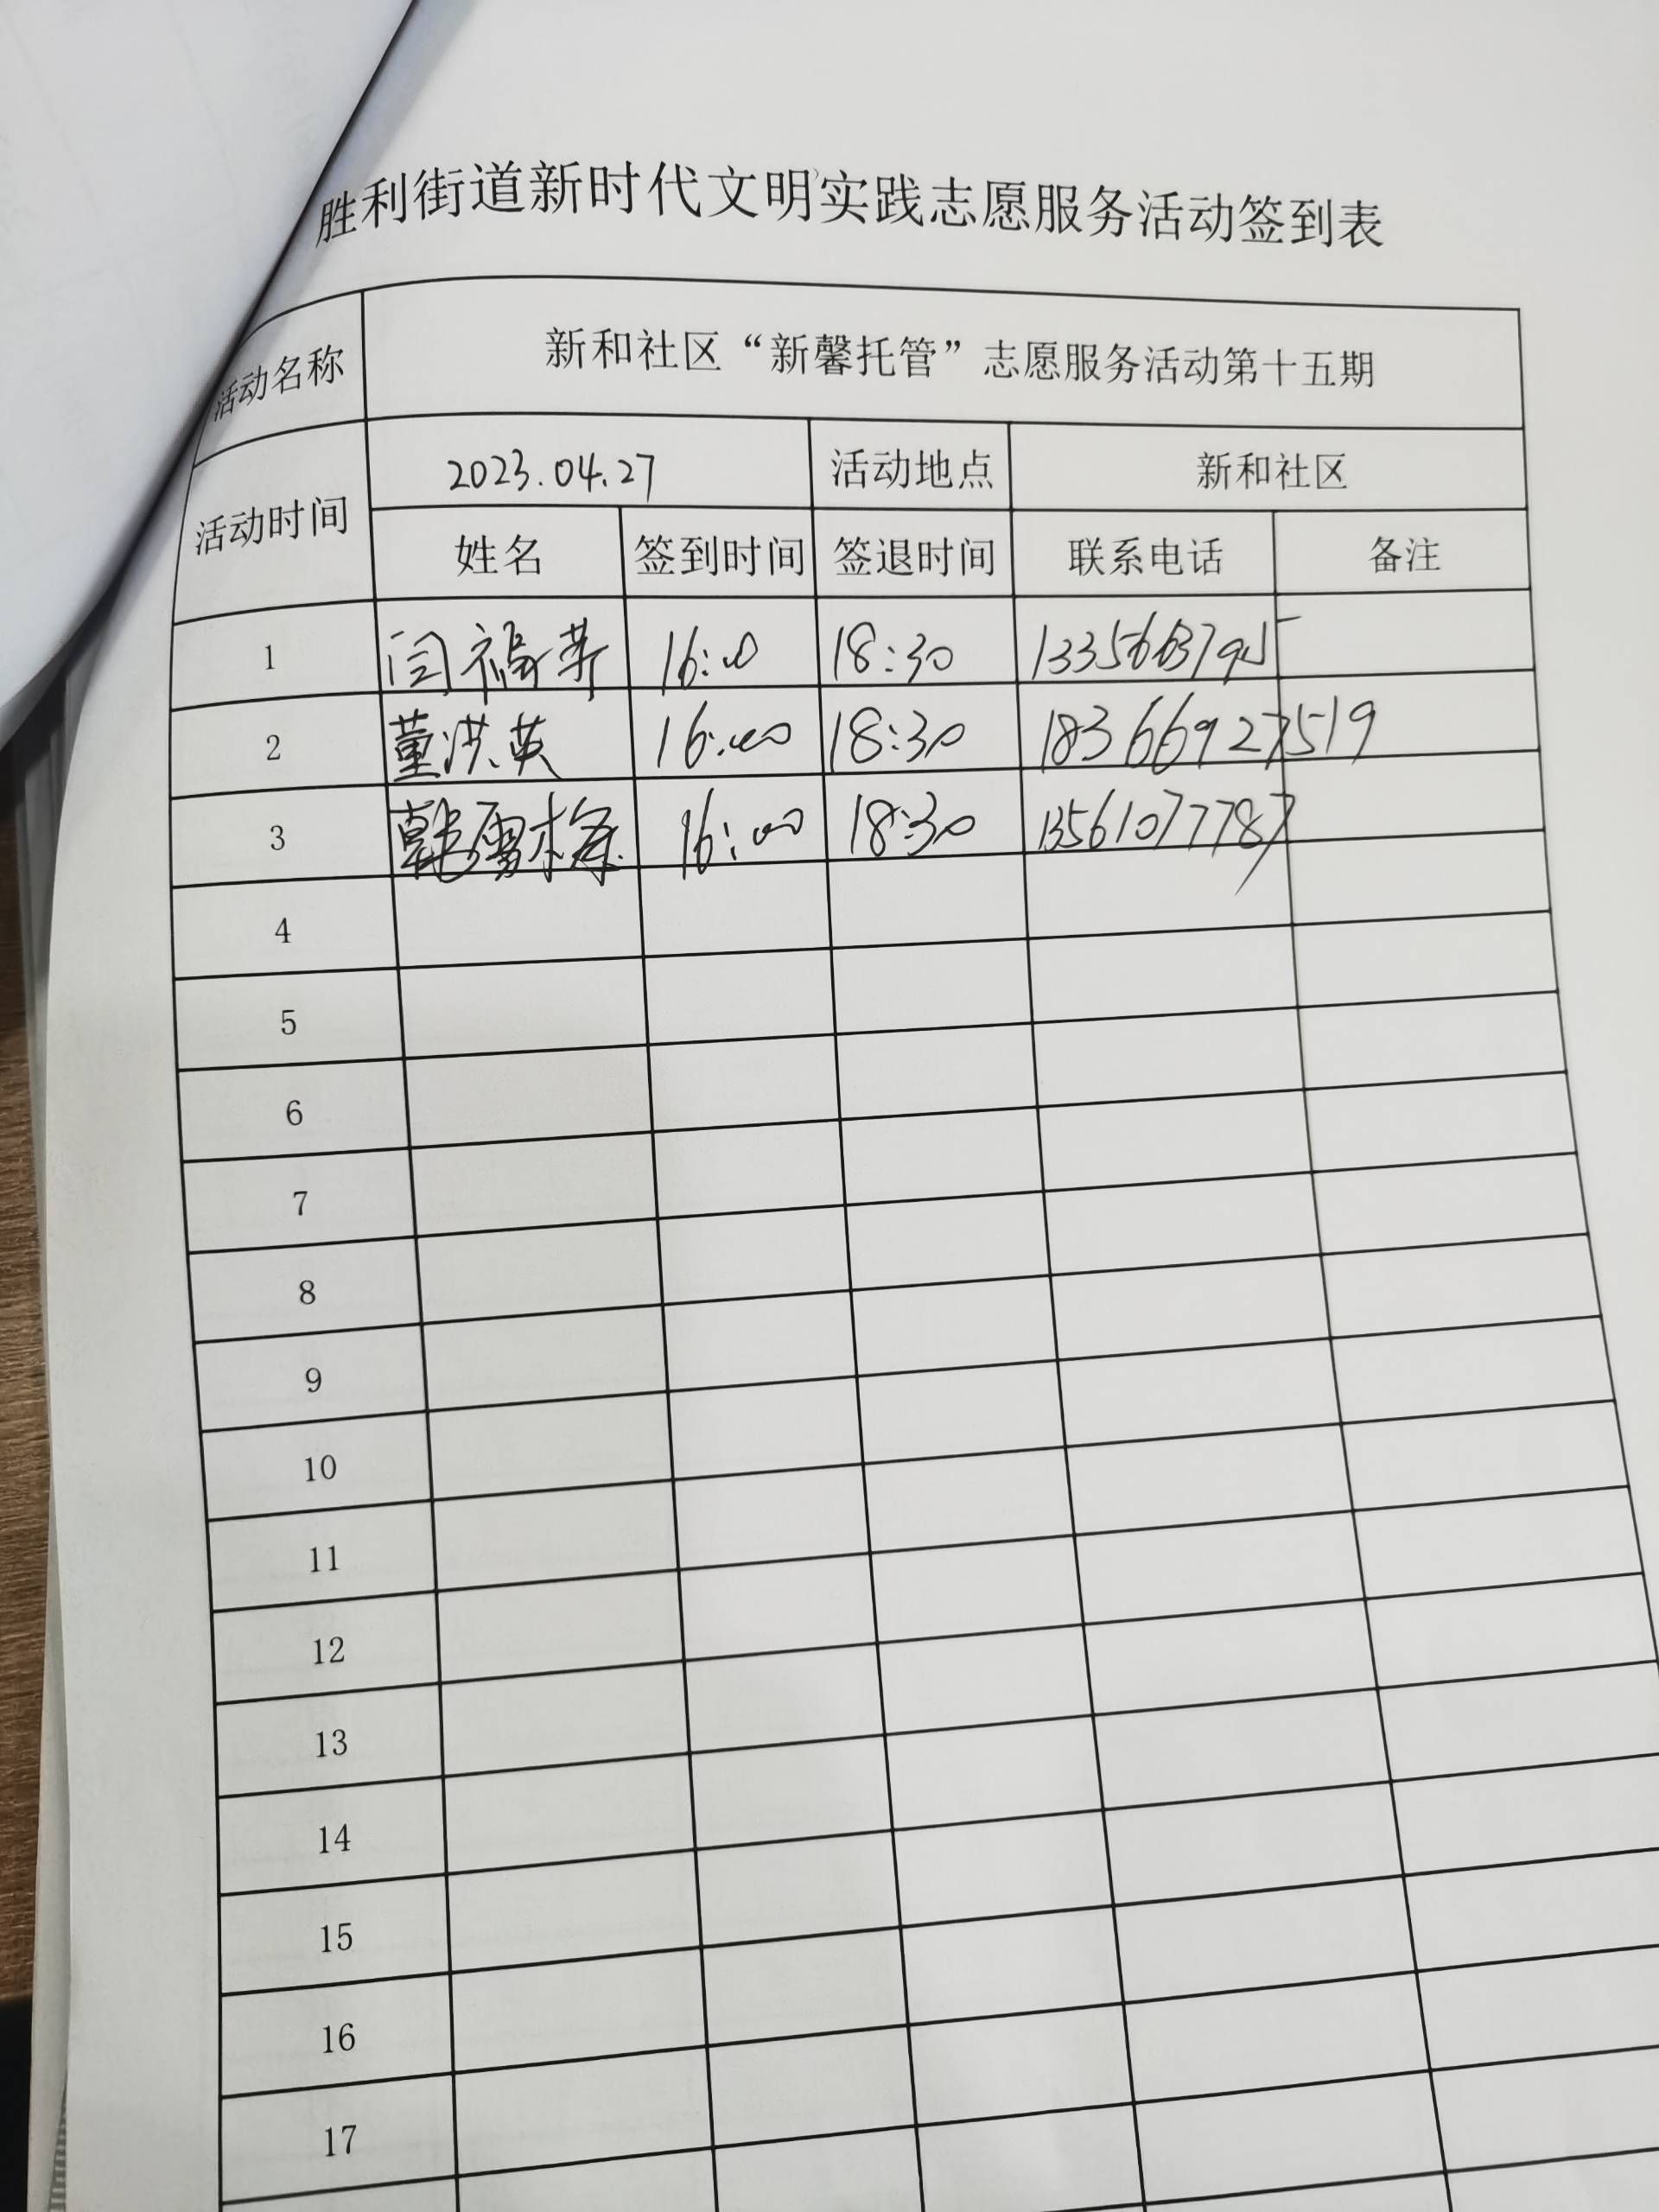 胜利街道新时代文明实践志愿服务活动签到表
活动名称 新和社区“新馨托管”志愿服务活动第十五期
活动时间 2023.04.27 活动地点 新和社区
姓名 签到时间 签退时间 联系电话 备注
1 闫福荣 16:00 18:30
2 董洪英 16:00 18:30 18366927519
3 韩雪梅 16:00 18:30 13561077787
4
5
6
7
8
9
10
11
12
13
14
15
16
17